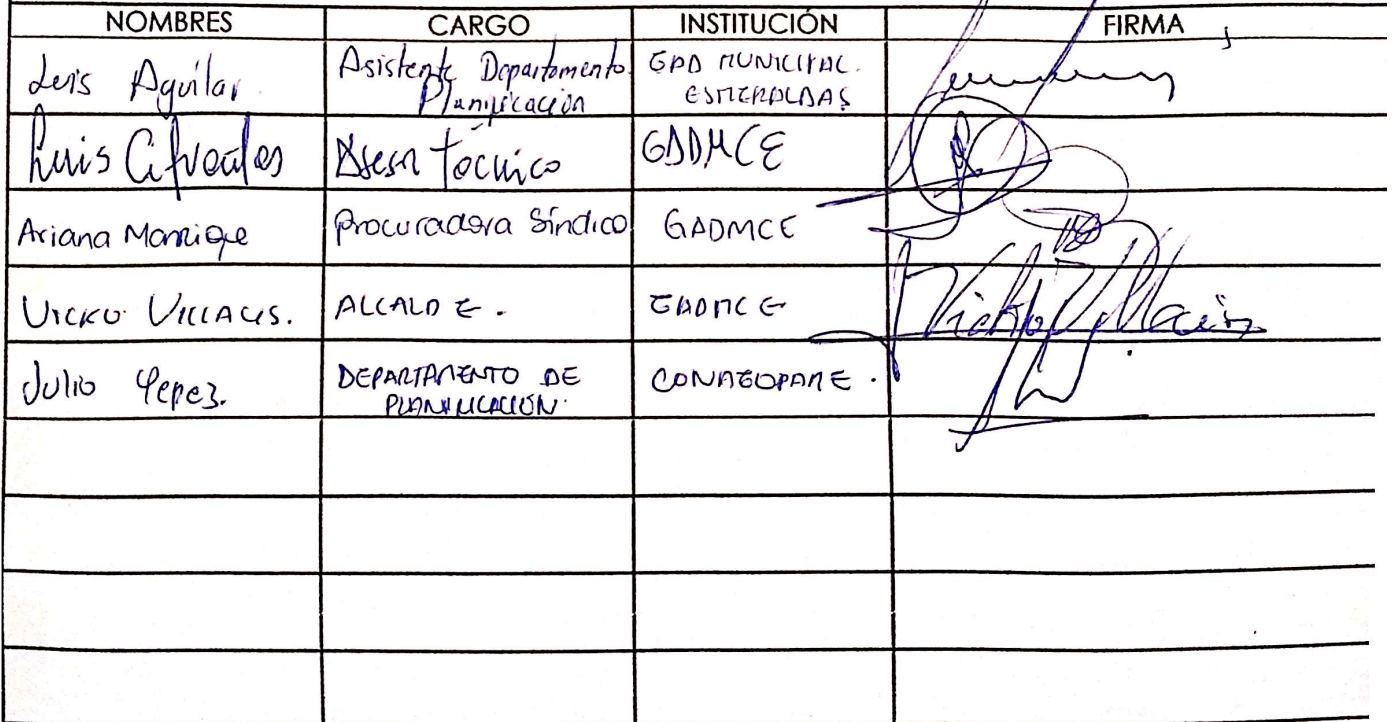 NOMBRES CARGO INSTITUCIÓN FIRMA
Luis Aguilar. Asistente Departamento Planificación GAD MUNICIPAL. ESMERALDAS
Luis Cifuentes Asesor Técnico GADMCE
Ariana Manrique Procuradora Síndico GADMCE
VICKO VILLACIS. ALCALDE. GADMCE Vicko Villacis
Julio Yepez. DEPARTAMENTO DE PLANIFICACIÓN. CONAGOPARE.